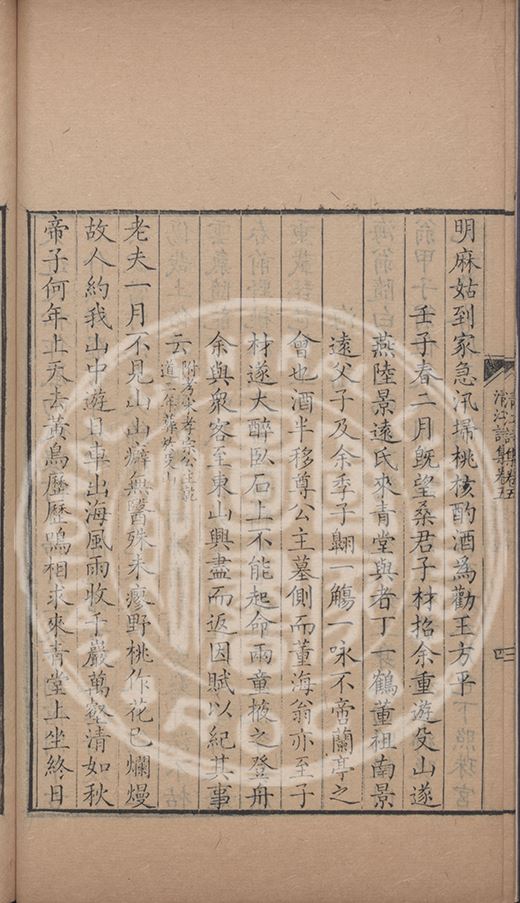 清江詩集卷五
四
明麻姑到家急汛埽桃核酌酒為勸王方平
壬子春二月既望桑君子材招余重遊殳山遂
燕陸景遠氏來青堂與者丁一鶴董祖南景
遠父子及余季子翺一觴一咏不啻蘭亭之
會也酒半移尊公主墓側而董海翁亦至子
材遂大醉臥石上不能起命兩童掖之登舟
余與衆客至東山興盡而返因賦以紀其事
云
老夫一月不見山山癖無醫殊未瘳野桃作花已爛熳
故人約我山中遊日車出海風雨收千巖萬壑清如秋
帝子何年上天去黃鳥歷歷鳴相求來青堂上坐終日